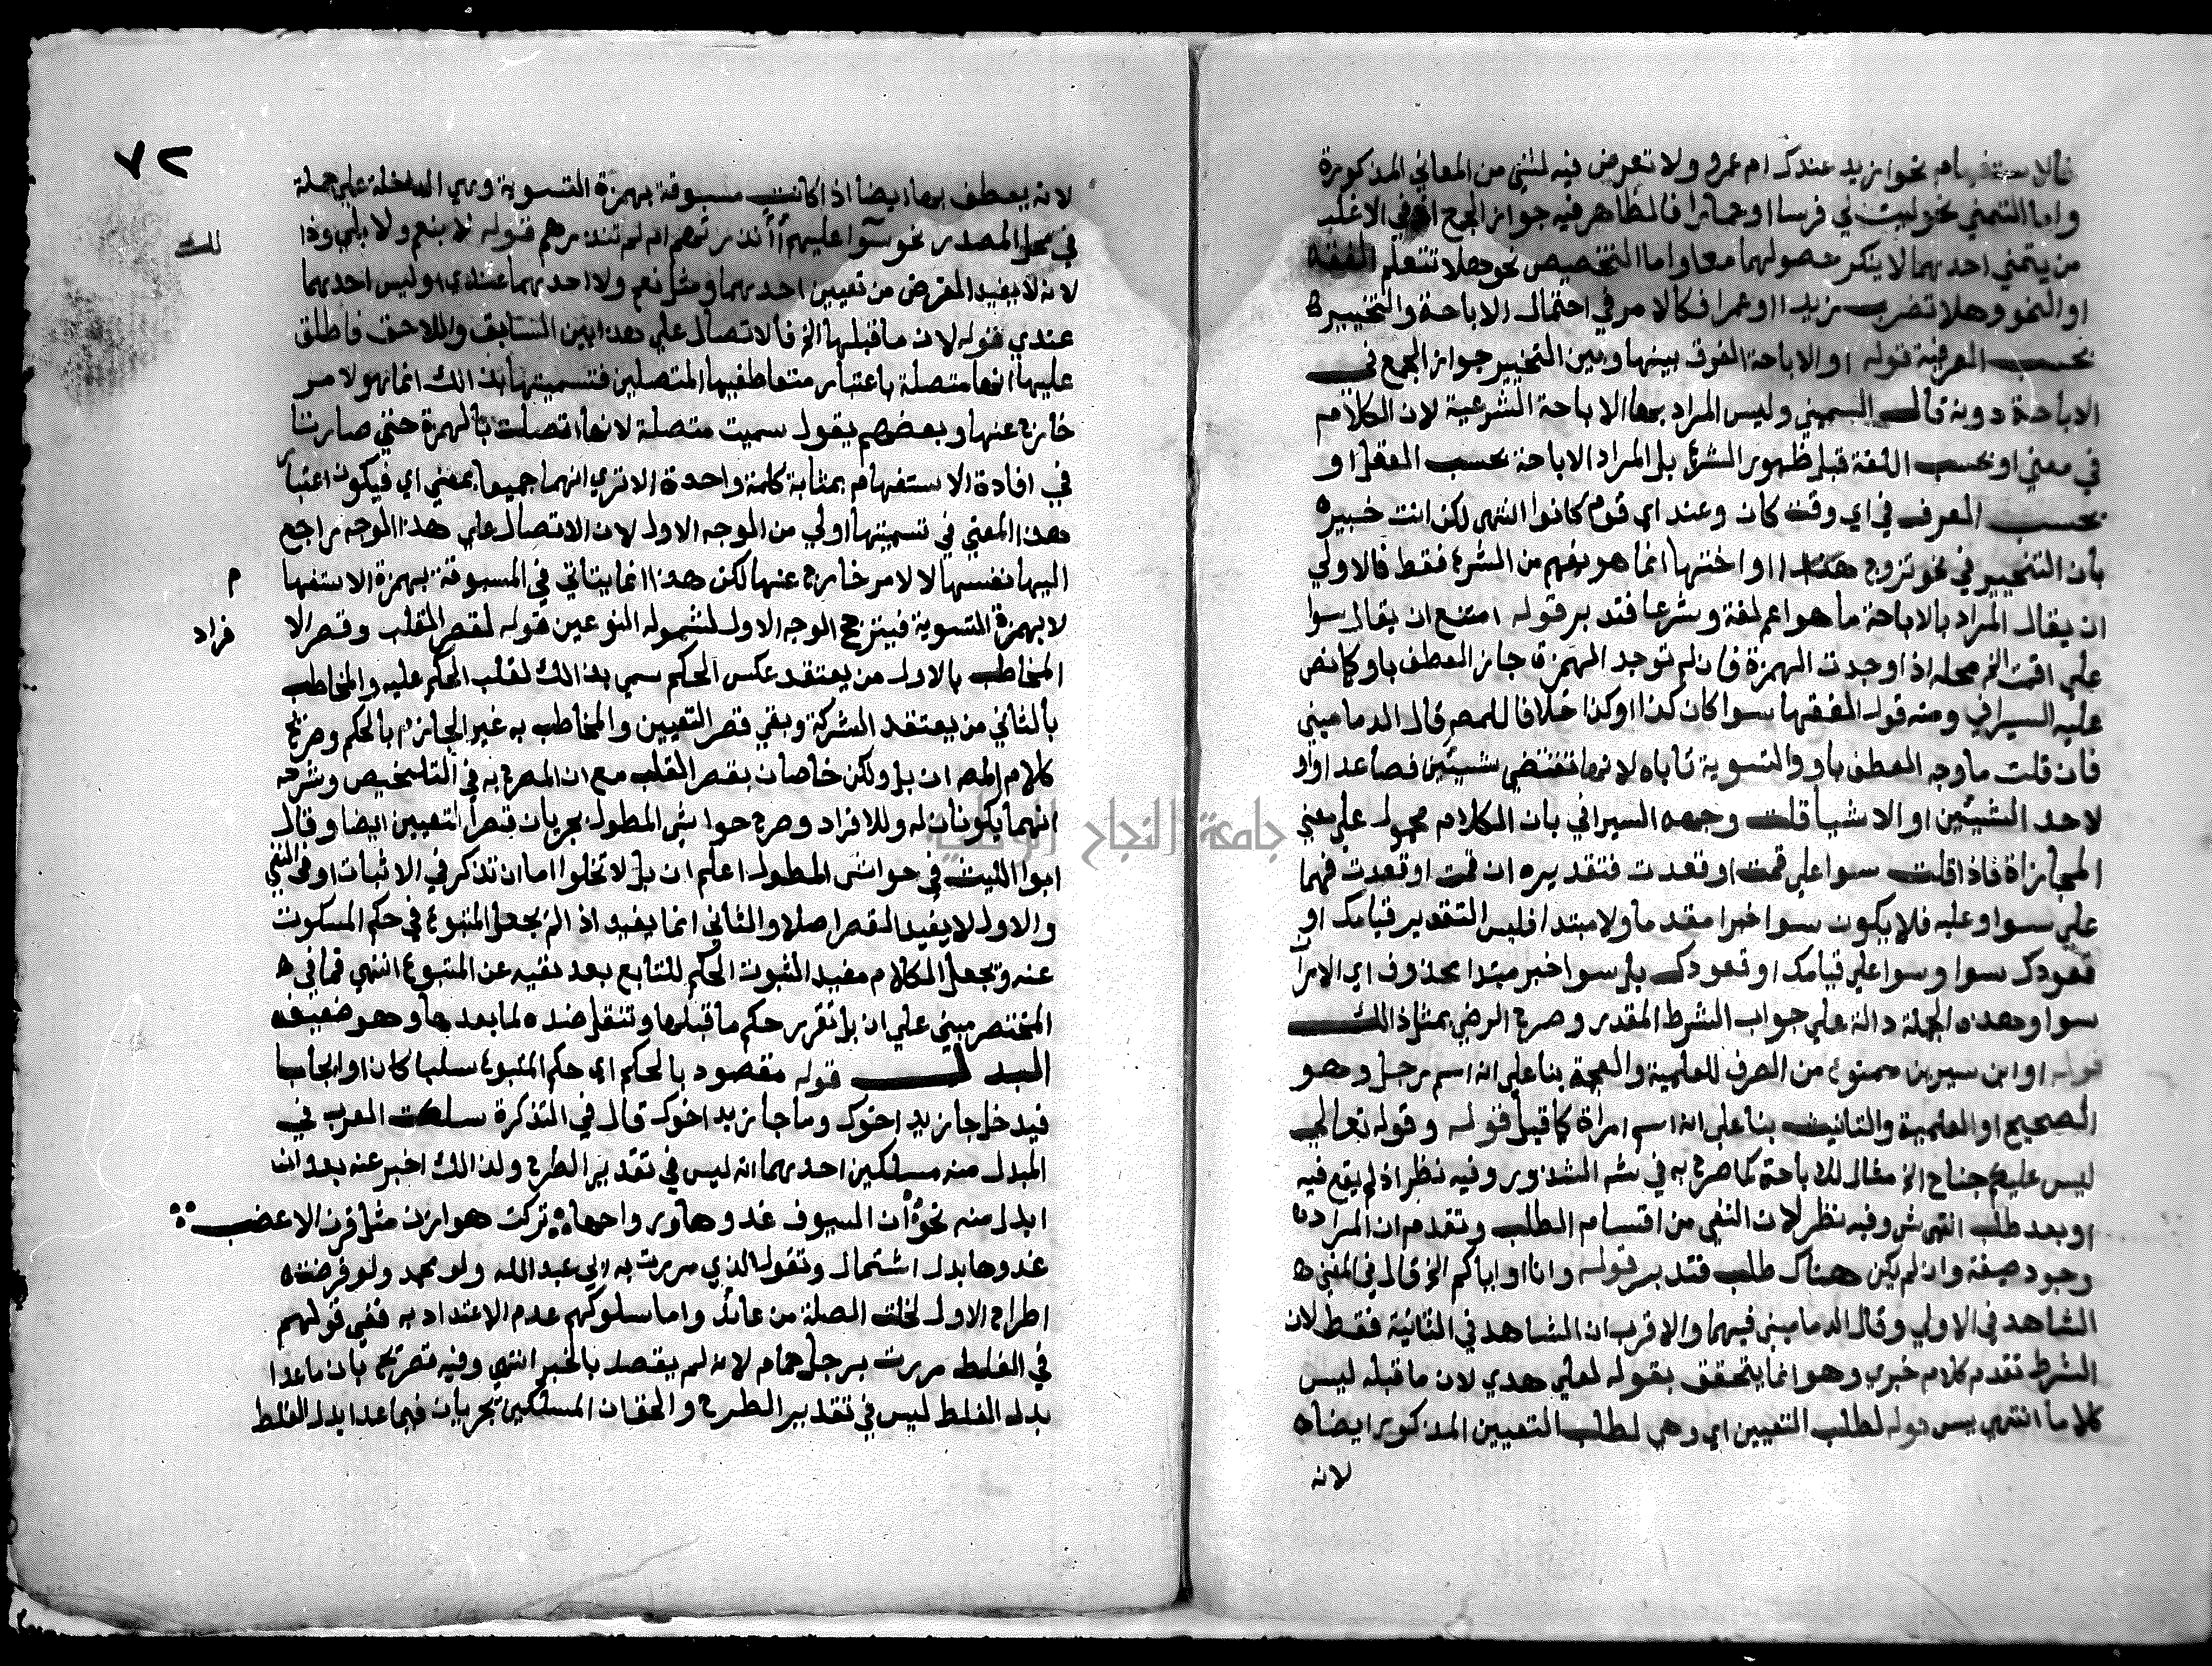 فالاستفهام نحو ازيد عندك ام عمرو ولا تعرض فيه لشئ من المعاني المذكورة
واما التمني نحو ليت لي فرسا او حمارا فالظاهر فيه جواز الجمع اذ في الاغلب
من يتمني احدهما لا ينكر حصولهما معا واما التخصيص نحو هلا تتعلم الفقه
او النحو وهلا تضرب زيدا او عمرا فكالامر في احتمال الاباحة والتخيير
بحسب القرينة قوله او الاباحة الفرق بينها وبين التخيير جواز الجمع في
الاباحة دونه قال السميني وليس المراد بها الاباحة الشرعية لان الكلام
في معني او بحسب اللغة قبل ظهور الشرع بل المراد الاباحة بحسب العقل او
بحسب العرف في اي وقت كان وعند اي قوم كانوا انتهى لكن انت خبير
بان التخيير في نحو تزوج هندا او اختها انما هو يفهم من الشرع فقط فالاولي
ان يقال المراد بالاباحة ما هو اعم لغة وشرعا فتدبر قوله امتنع ان يقال سوا
علي اقمت الخ محله اذا وجدت الهمزة فان لم توجد الهمزة جاز العطف باو كما نص
عليه السيرافي ومنه قول الفقها سوا كان كذا او كذا خلافا للمص قال الدماميني
فان قلت ما وجه العطف باو والتسوية تاباه لانها تقتضي شيئين فصاعدا واو
لاحد الشيئين او الاشيا قلت وجهه السيرافي بان الكلام محمول علي معني
المجازاة فاذا قلت سوا علي قمت او قعدت فتقديره ان قمت او قعدت فهما
علي سوا وعليه فلا يكون سوا خبرا مقدما ولا مبتدا فليس التقدير قيامك او
قعودك سوا وسوا علي قيامك او قعودك بل سوا خبر مبتدا محذوف اي الامران
سوا وهذه الجملة دالة علي جواب الشرط المقدر وصرح الرضي بمثل ذالك
قوله او ابن سيرين ممنوع من الصرف للعلمية والعجمة بنا علي انه اسم رجل وهو
الصحيح او العلمية والتانيث بنا علي انه اسم امراة كما قيل قوله وقوله تعالي
ليس عليكم جناح الخ مثال للاباحة كما صرح به في شر الشذور وفيه نظر اذ لم يقع فيه
او بعد طلب انتهى ش وفيه نظر لان النفي من اقسام الطلب وتقدم ان المراد
وجود صيغة وان لم يكن هناك طلب فتدبر قوله وانا او اياكم الخ قال في المغني
الشاهد في الاولي وقال الدماميني فيهما والاقرب ان الشاهد في الثانية فقط لان
الشرط تقدم كلام خبري وهو انما يتحقق بقوله لعلي هدي لان ما قبله ليس
كلاما انتهى يس قوله لطلب التعيين اي وهي لطلب التعيين المذكور ايضا
لانه
٧٢
لانه يعطف بها ايضا اذا كانت مسبوقة بهمزة التسوية وهي الداخلة علي جملة
في محل المصدر نحو سوآ عليهم أأنذرتهم ام لم تنذرهم قوله لا بنعم ولا بلي وذا
لك
لانه لا يفيد الغرض من تعيين احدهما ومثل نعم ولا احدهما عندي او ليس احدهما
عندي قوله لان ما قبلها الخ فالاتصال علي هذا بين السابق واللاحق فاطلق
عليها انها متصلة باعتبار متعاطفيها المتصلين فتسميتها بذالك انما هو لامر
خارج عنها وبعضهم يقول سميت متصلة لانها اتصلت بالهمزة حتي صارتا
في افادة الاستفهام بمثابة كلمة واحدة الا تري انهما جميعا بمعني اي فيكون اعتبار
هذا المعني في تسميتها اولي من الوجه الاول لان الاتصال علي هذا الوجه راجع
اليها نفسها لا لامر خارج عنها لكن هذا انما يتاتي في المسبوقة بهمزة الاستفها
م
لا بهمزة التسوية فيترجح الوجه الاول لشموله النوعين قوله لقصر القلب وقصر الا
فراد
المخاطب بالاول من يعتقد عكس الحكم سمي بذالك لقلب الحكم عليه والمخاطب
بالثاني من يعتقد الشركة وبقي قصر التعيين والمخاطب به غير الجازم بالحكم وصريح
كلام المص ان بل ولكن خاصان بقصر القلب مع ان المصرح به في التلخيص وشرحه
انهما يكونان له وللافراد وصرح حواشي المطول بجريان قصر التعيين ايضا وقال
ابوا الليث في حواشي المطول اعلم ان بل لا تخلوا اما ان تذكر في الاثبات او في النفي
والاول لا يفيد القصر اصلا والثاني انما يفيد اذا لم يجعل المتبوع في حكم المسكوت
عنه وتجعل الكلام مفيد الثبوت الحكم للتابع بعد نفيه عن المتبوع انتهي فما في
المختصر مبني علي ان بل تقرر حكم ما قبلها وتنقل ضده لما بعدها وهو ضعيف
البدل قوله مقصود بالحكم اي حكم المتبوع سلبا كان او ايجابا
فيدخل جا زيد اخوك وما جا زيد اخوك قال في التذكرة سلكت العرب في
المبدل منه مسلكين احدهما انه ليس في تقدير الطرح ولذالك اخبر عنه بعد ان
ابدل منه نحو أن السيوف غدوها ورواحها تركت هوازن مثل قرن الاعضب
غدوها بدل اشتمال وتقول الذي مررت به ابي عبد الله ولو محمد ولو فرضت
اطراح الاول لخلت الصلة من عائد واما سلوكهم عدم الاعتداد به ففي قولهم
في الغلط مررت برجل حمام لانه لم يقصد بالخبر انتهي وفيه تصريح بان ما عدا
بدل الغلط ليس في تقدير الطرح والحق ان المسلكين يجريان فيما عدا بدل الغلط
جامعة النجاح الوطنية